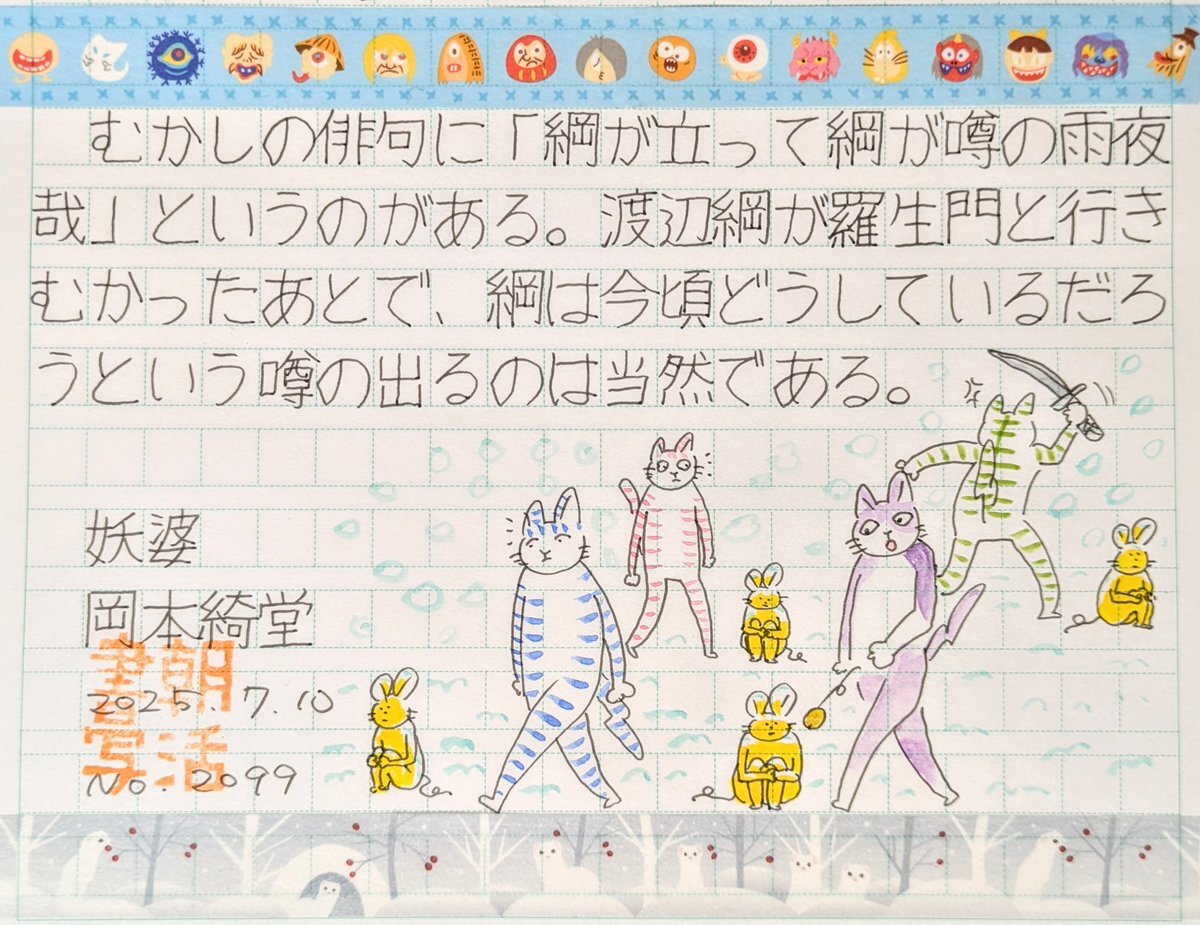 むかしの俳句に「綱が立って綱が噂の雨夜
哉」というのがある。渡辺綱が羅生門と行き
むかったあとで、綱は今頃どうしているだろ
うという噂の出るのは当然である。
妖婆
岡本綺堂
朝活書写
2025.7.10
No.2099